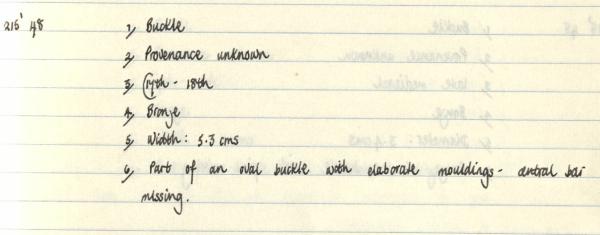 215' 48 1, Buckle
2, Provenance unknown
3, 17th - 18th
4, Bronze
5, Width: 5.3 cms
6, Part of an oval buckle with elaborate mouldings - central bar
missing.